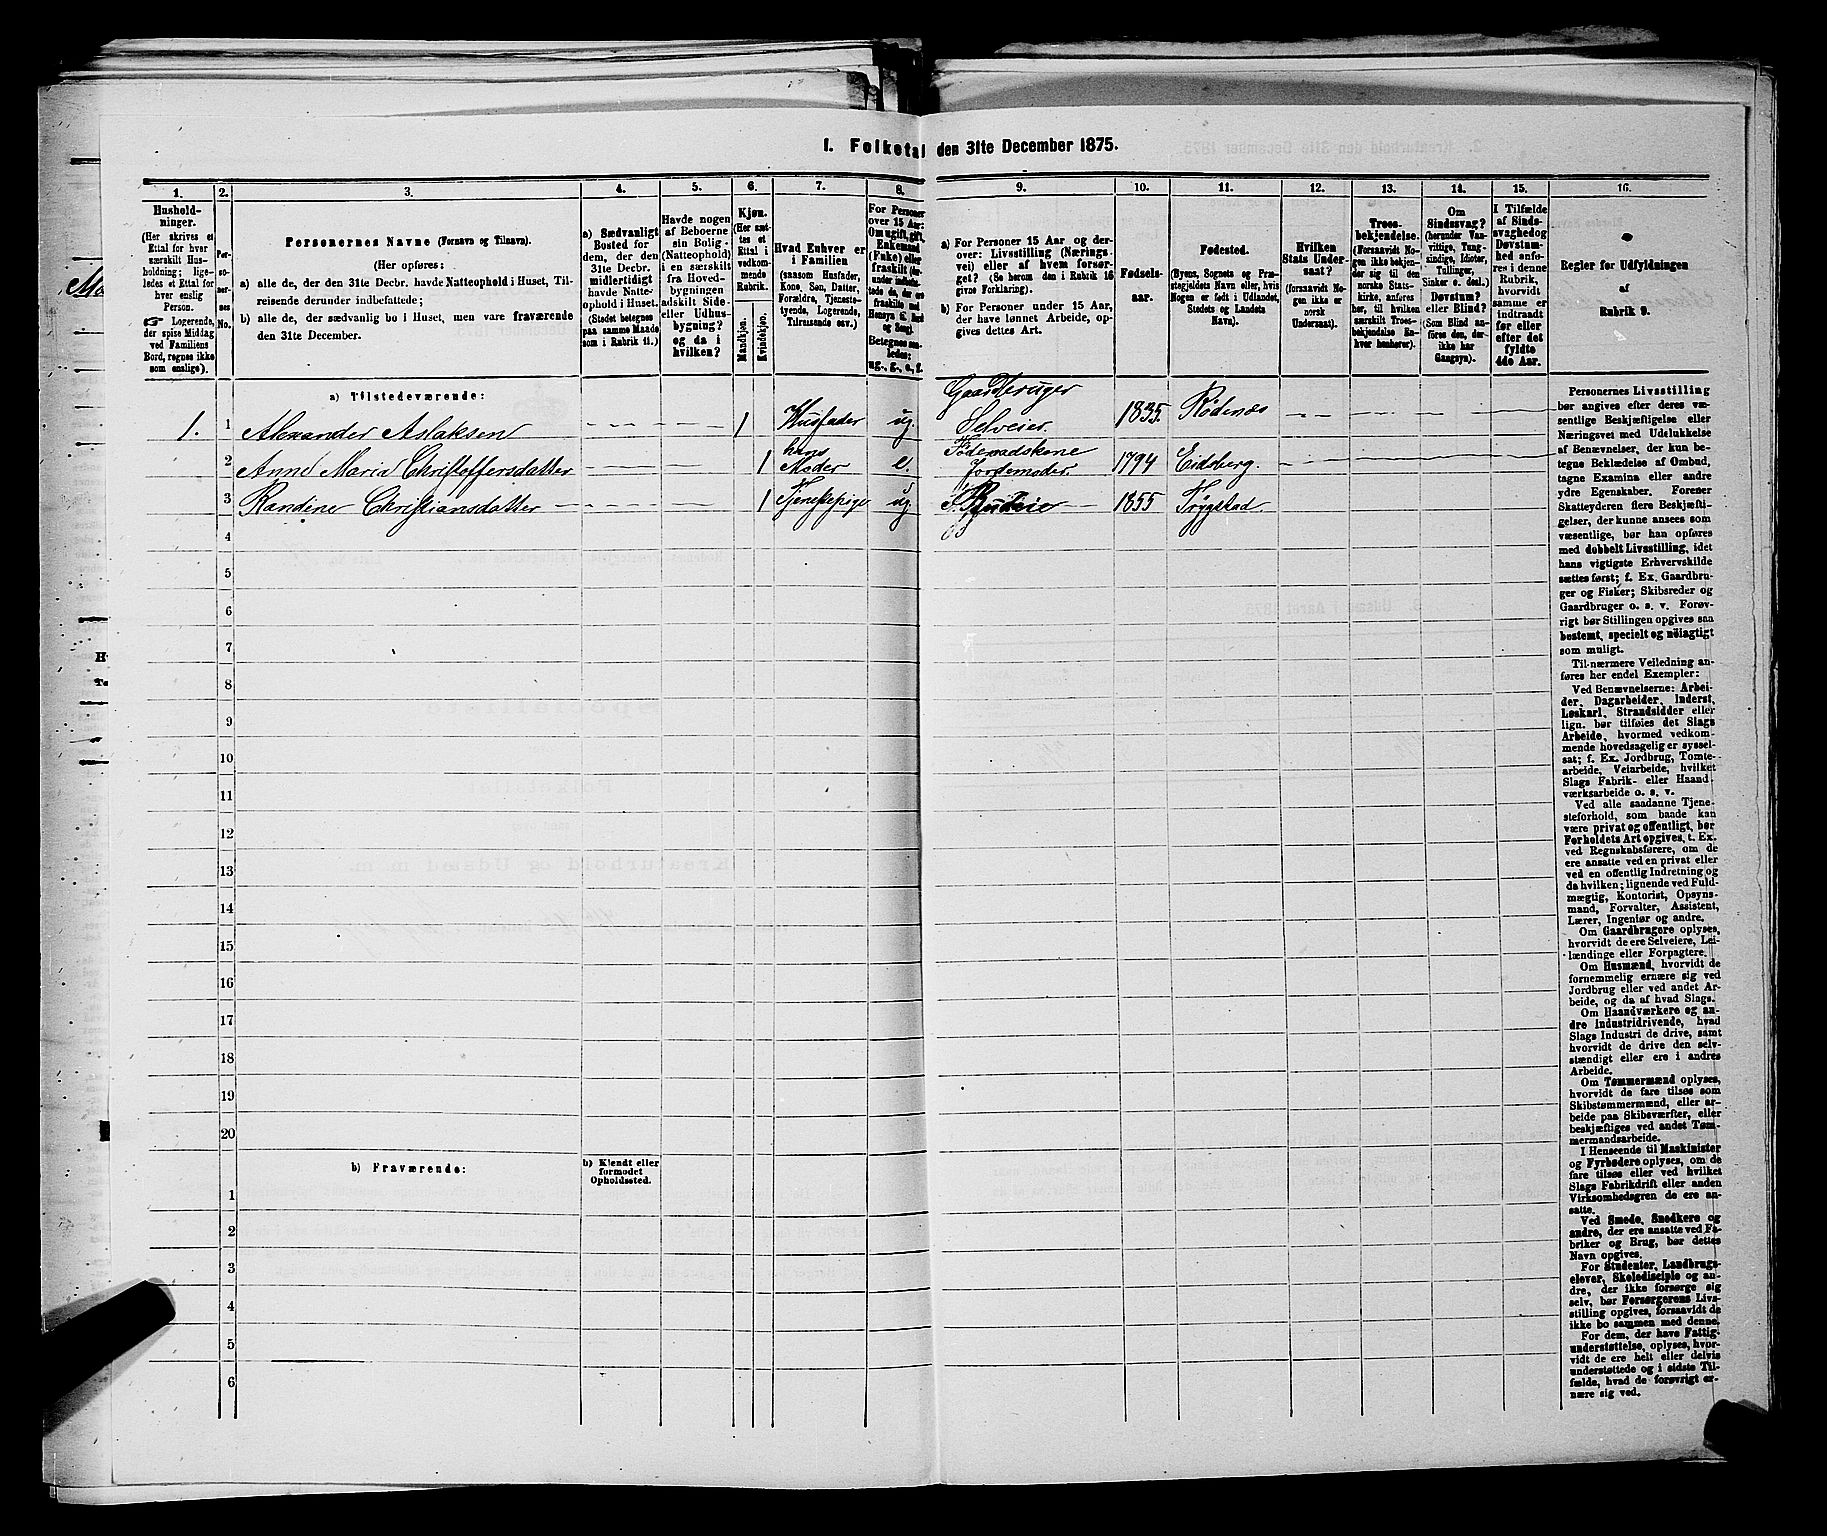 1. Folketal den 31te December 1875.
1.
Husholdninger.
(Her skrives et
Ettal for hver
særskilt Husholdning;
ligeledes et Ettal for
hver enslig
Person.
☞ Logerende,
der spise Middag
ved Familiens
Bord, regnes ikke
som enslige).
2.
Personernes No.
3.
Personernes Navne (Fornavn og Tilnavn).
(Her opføres:
a) alle de, der den 31te Decbr. havde Natteophold i Huset, Tilreisende derunder indbefattede;
b) alle de, der sædvanlig bo i Huset, men vare fraværende
den 31te December.
4.
a) Sædvanligt
Bosted for
dem, der den
31te Decbr.
midlertidigt
havde Natteophold i Huset.
(Stedet betegnes
paa samme Maade
som i Rubrik 11.)
5.
Havde nogen
af Beboerne
sin Bolig
(Natteophold)
i en særskilt
fra Hovedbygningen
adskilt Side-
eller Udhusbygning?
og da i
hvilken?
6.
Kjøn.
(Her sættes et
Ettal i
vedkommende
Rubrik.
Mandkjøn.
Kvindekjøn.
7.
Hvad Enhver er
i Familien
(saasom Husfader,
Kone, Søn, Datter,
Forældre, Tjenestetyende, Logerende,
Tilreisende osv.)
8.
For Personer
over 15 Aar:
Om ugift, gift,
Enkemand
(Enke) eller
fraskilt
Betegnes saaledes:
ug., g., e., f.
9.
a) For Personer 15 Aar og derover: Livsstilling (Næringsvei) eller af hvem forsørget? (Se herom den i Rubrik 16
givne Forklaring).
b) For Personer under 15 Aar,
der have lønnet Arbeide, opgives dettes Art.
10.
Fødselsaar.
11.
Fødested.
(Byens, Sognets og Præstegjeldets Navn, eller, hvis
Nogen er født i Udlandet,
Stedets og Landets
Navn).
12.
Hvilken
Stats Undersaat?
(forsaavidt Nogen ikke er
norsk
Undersaat).
13.
Troesbekjendelse.
(Forsaavidt Nogen ikke bekjender sig til den
norske Statskirke, anføres
her, til hvilken
særskilt Troesbekjendelse Enhver henhører).
14.
Om
Sindssvag?
(herunder Vanvittige, Tungsindige, Idioter,
Tullinger,
Sinker o. desl.)
Døvstum?
eller Blind?
(Som Blind anføres den, der
ikke har
Gangsyn).
15.
I Tilfælde
af Sindssvaghed og
Døvstumhed anføres i denne
Rubrik,
hvorvidt
samme er
indtraadt
før eller
efter det
fyldte
4de Aar.
16.
Regler for Udfyldningen
af
Rubrik 9.
a) Tilstedeværende:
1. 1 Alexander Aslaksen 1 Husfader ug. Gaardbruger Selveier. 1835 Rødenæs
2 Anne Maria Christoffersdatter 1 hans Moder e. Føderaadskone Jordemoder. 1794 Eidsberg.
3 Randine Christiansdatter 1 Tjenestepige ug Budeie 1855 Trygstad.
4
5
6
7
8
9
10
11
12
13
14
15
16
17
18
19
20
b) Fraværende:
b) Kjendt eller
formodet
Opholdssted.
1
2
3
4
5
6
Personernes Livsstilling
bør angives efter deres væsentlige Beskjæftigelse eller
Næringsvei med Udelukkelse
af Benævnelser, der kun betegne Beklædelse af Ombud,
tagne Examina eller andre
ydre Egenskaber. Forener
Skatteyderen flere Beskjæftigelser, der kunne ansees som
væsentlige, bør han opføres
med dobbelt Livsstilling, idet
hans vigtigste Erhvervskilde
sættes først; f. Ex. Gaardbruger og Fisker; Skibsreder og
Gaardbruger o. s. v. Forøvrigt bør Stillingen opgives saa
bestemt, specielt og nøiagtigt
som muligt.
Til nærmere Veiledning anføres her endel Exempler:
Ved Benævnelserne: Arbeider, Dagarbeider, Inderst,
Løskarl, Strandsidder eller
lign. bør tilføies det Slags
Arbeide, hvormed vedkommende hovedsagelig er sysselsat; f. Ex. Jordbrug, Tomtearbeide, Veiarbeide, hvilket
Slags Fabrik- eller Haandværksarbeide o. s. v.
Ved alle saadanne Tjenesteforhold, som baade kan
være privat og offentligt, bør
Forholdets Art opgives, t. Ex.
ved Regnskabsførere, om de
ere ansatte ved en privat eller
ved en offentlig Indretning og
da hvilken; lignende ved Fuldmægtig, Kontorist, Opsynsmand, Forvalter, Assistent,
Lærer, Ingeniør og andre.
Om Gaardbrugere oplyses,
hvorvidt de ere Selveiere, Leilændinge eller Forpagtere.
Om Husmænd, hvorvidt de
fornemmelig ernære sig ved
Jordbrug eller ved andet Arbeide, og da af hvad Slags.
Om Haandværkere og andre Industridrivende, hvad
Slags Industri de drive, samt
hvorvidt de drive den selvstændigt eller ere i andres
Arbeide.
Om Tømmermænd oplyses,
hvorvidt de fare tilsøs som
Skibstømmermænd, eller arbeide paa Skibsværfter, eller
beskjæftiges ved andet Tømmermandsarbeide.
I Henseende til Maskinister
og Fyrbødere oplyses, om de
fare tilsøs eller ved hvilket
Slags Fabrikdrift eller anden
Virksomhedsgren de ere ansatte.
Ved Smede, Snedkere og
andre, der ere ansatte ved Fabriker og Brug, bør dettes
Navn opgives.
For Studenter, Landbrugselever, Skoledisciple og andre, der ikke forsørge sig
selv, bør Forsørgerens Livsstilling opgives, forsaavidt de
ikke bo sammen med denne.
For dem, der have Fattigunderstøttelse, oplyses, hvorvidt de ere helt eller delvis
understøttede og i sidste Tilfælde, hvad de forøvrigt ernære sig ved.